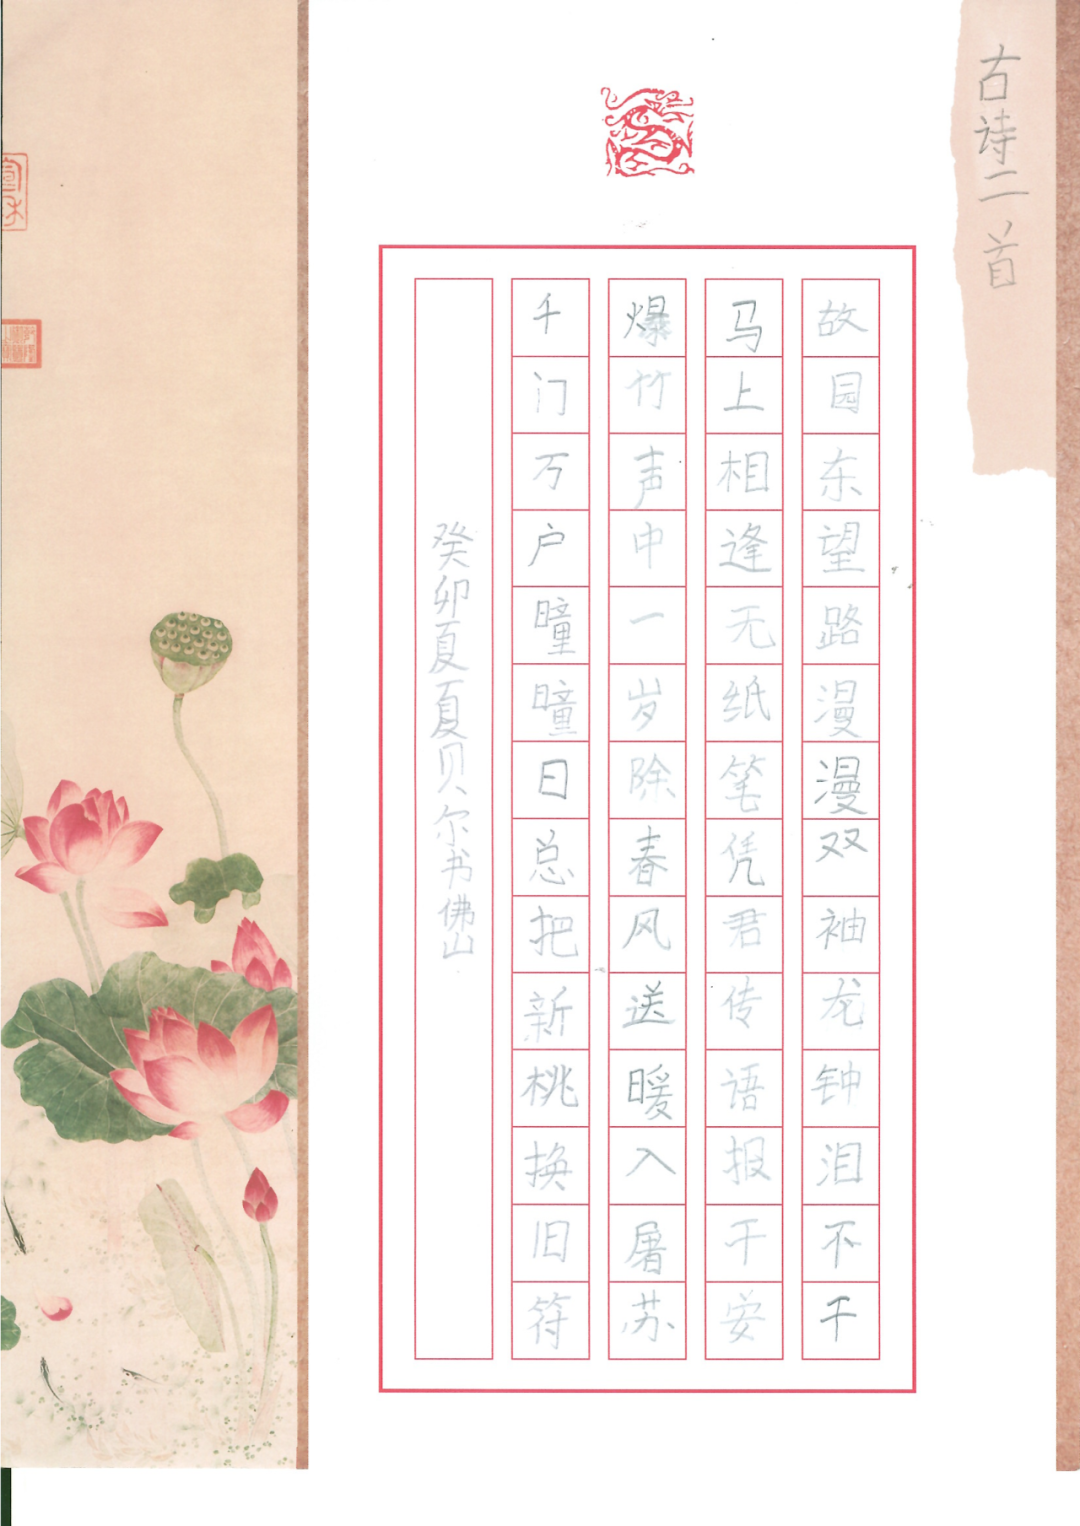 古诗二首
故园东望路漫漫双袖龙钟泪不干
马上相逢无纸笔凭君传语报干安
爆竹声中一岁除春风送暖入屠苏
千门万户曈曈日总把新桃换旧符
癸卯夏夏贝尔书佛山